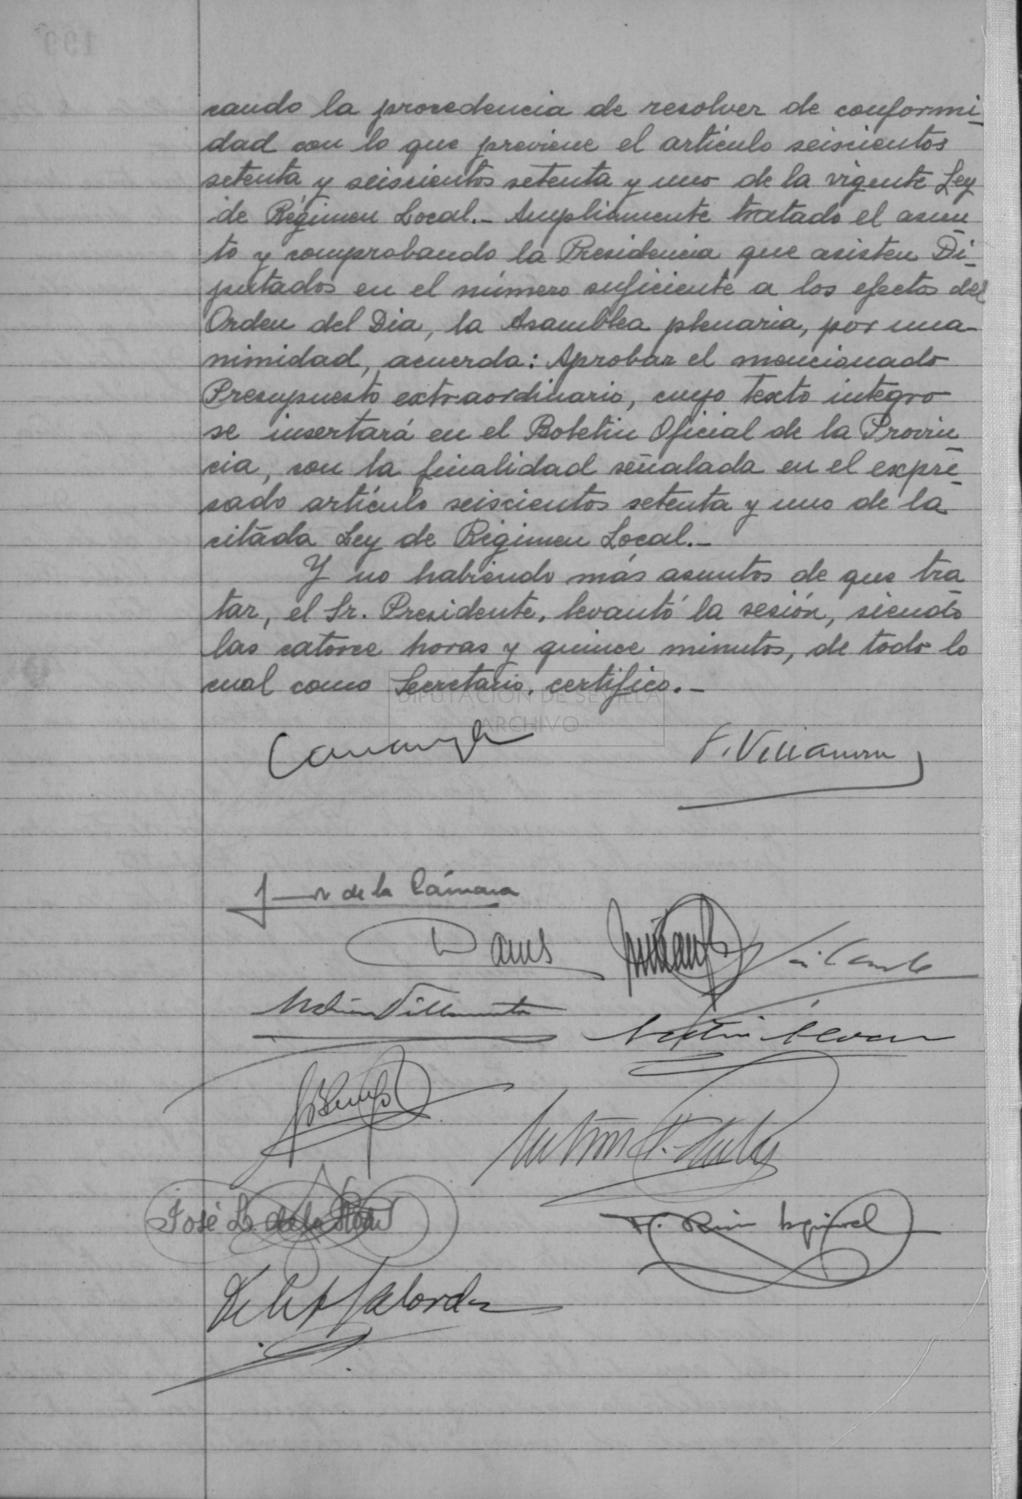 cando la procedencia de resolver de conformi-
dad con lo que previene el artículo seiscientos
setenta y seiscientos setenta y uno de la vigente Ley
de Régimen Local.- Ampliamente tratado el asun-
to y comprobando la Presidencia que asisten Di-
putados en el número suficiente a los efectos del
Orden del Dia, la Asamblea plenaria, por una-
nimidad, acuerda: Aprobar el mencionado
Presupuesto extraordinario, cuyo texto integro
se insertará en el Boletin Oficial de la Provin-
cia, con la finalidad señalada en el expre-
sado artículo seiscientos setenta y uno de la
citada Ley de Régimen Local.-
Y no habiendo más asuntos de que tra
tar, el Sr. Presidente, levantó la sesión, siendo
las catorce horas y quince minutos, de todo lo
cual como Secretario, certifico.-
DIPUTACIÓN DE SEVILLA
ARCHIVO
de la Cámara
José L. de la Rosa